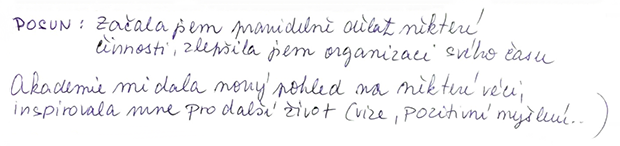 POSUN: Začala jsem pravidelně dělat některé
činnosti, zlepšila jsem organizaci svého času
Akademie mi dala nový pohled na některé věci,
inspirovala mne pro další život (vize, pozitivní myšlení..)